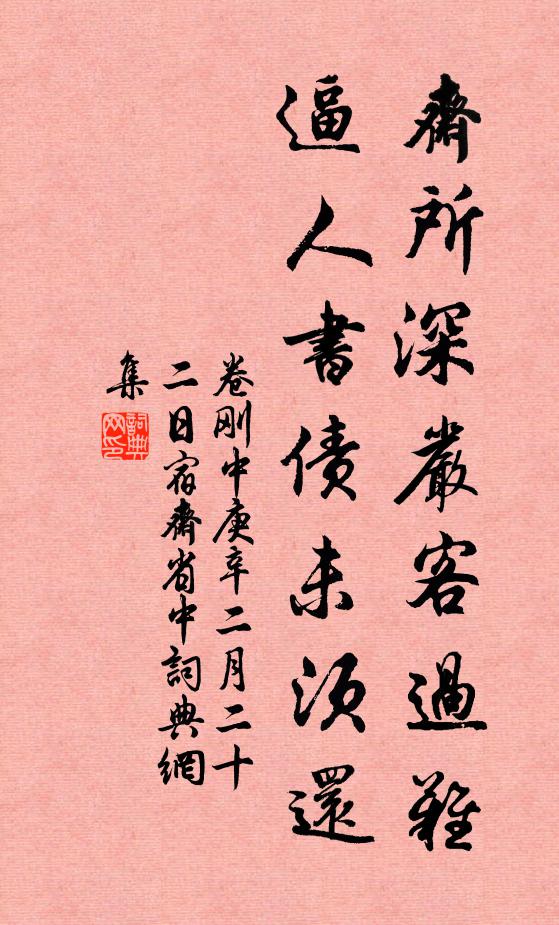 齋所深嚴客過難
逼人書債未須還
卷刚中庚辛二月二十
二日宿齋省中詞典網
集
詞典网印